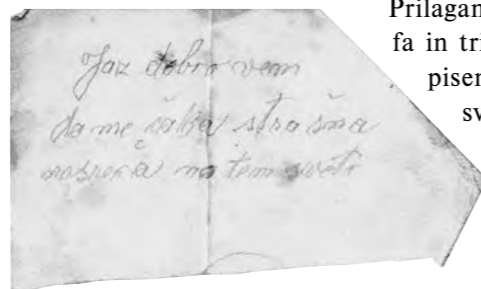 Prilagam
fa in tri
pisem
sv
Jaz dobro vem
da me čaka strašna
nesreča na tem sveti